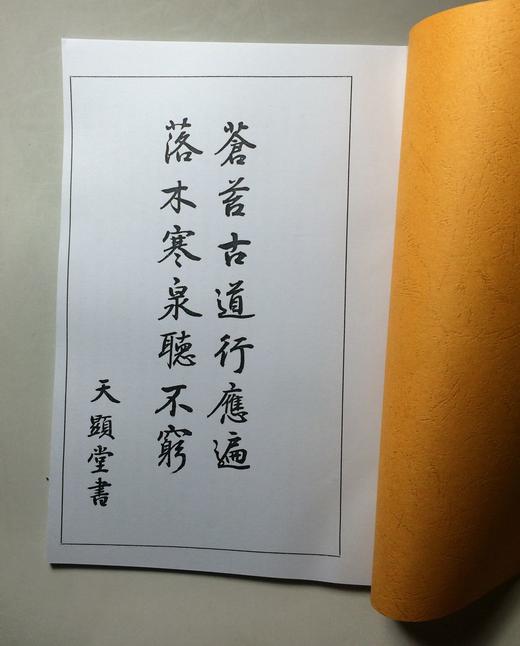 蒼苔古道行應遍
落木寒泉聽不窮
天顯堂書